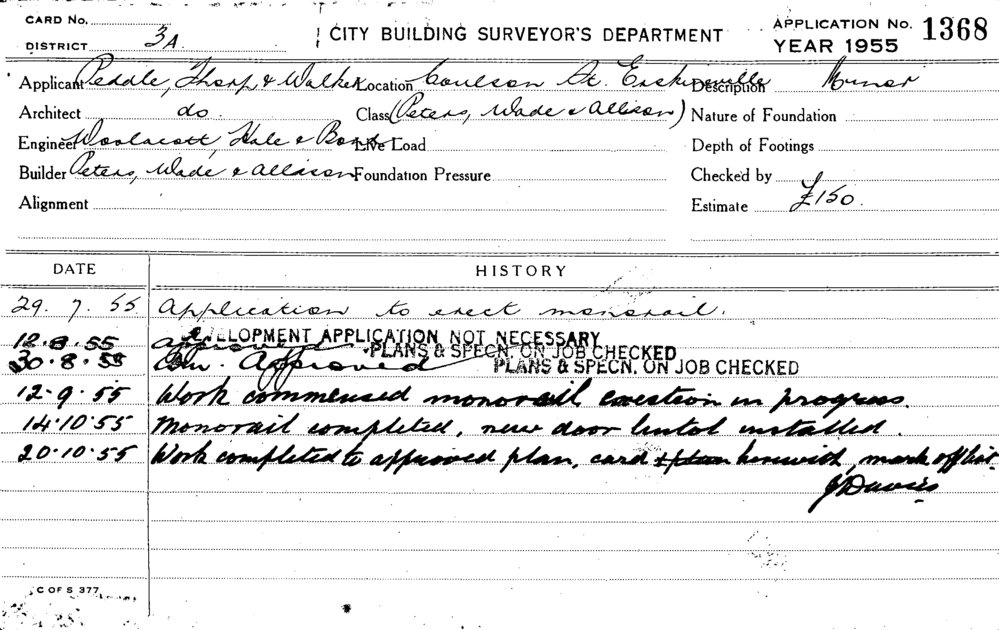 CARD No.
DISTRICT 3A
CITY BUILDING SURVEYOR'S DEPARTMENT
APPLICATION No. 1368
YEAR 1955
Applicant Peddle, Thorp & Walker Location Coulson St. Erskineville Description Minor
Architect do. Class (Peters, Wade & Allison) Nature of Foundation
Engineer Woolacott, Hale & Bond Live Load Depth of Footings
Builder Peters, Wade & Allison Foundation Pressure Checked by
Alignment Estimate £150.
DATE HISTORY
29.7.55 Application to erect monorail.
DEVELOPMENT APPLICATION NOT NECESSARY
12.8.55 PLANS & SPECN. ON JOB CHECKED
30.8.55 Approved PLANS & SPECN. ON JOB CHECKED
12.9.55 Work commensed monorail erection in progress.
14.10.55 Monorail completed, new door lintol installed.
20.10.55 Work completed to approved plan, card herewith, mark off list.
J Davies
C OF S 377